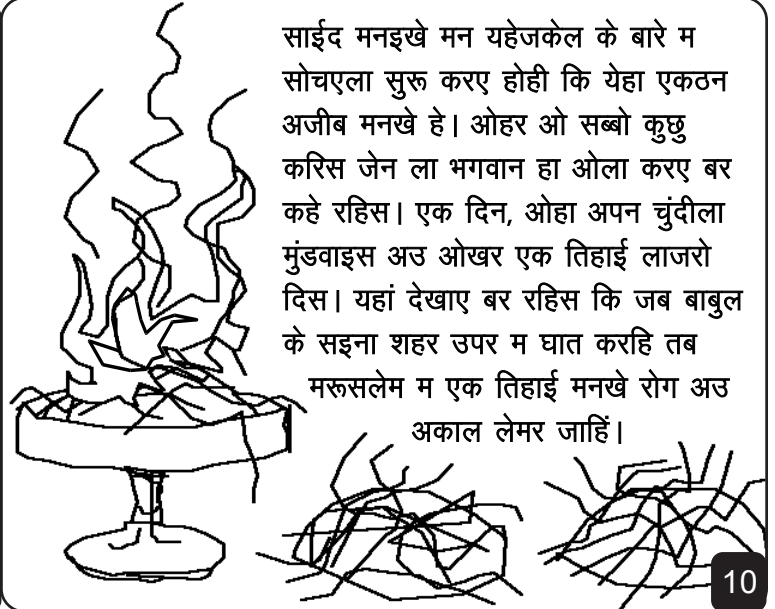 साईद मनइखे मन यहेजकेल के बारे म
सोचएला सुरू करए होही कि येहा एकठन
अजीब मनखे हे। ओहर ओ सब्बो कुछु
करिस जेन ला भगवान हा ओला करए बर
कहे रहिस। एक दिन, ओहा अपन चुंदीला
मुंडवाइस अउ ओखर एक तिहाई लाजरो
दिस। यहां देखाए बर रहिस कि जब बाबुल
के सइना शहर उपर म घात करहि तब
मरूसलेम म एक तिहाई मनखे रोग अउ
अकाल लेमर जाहिं।
10